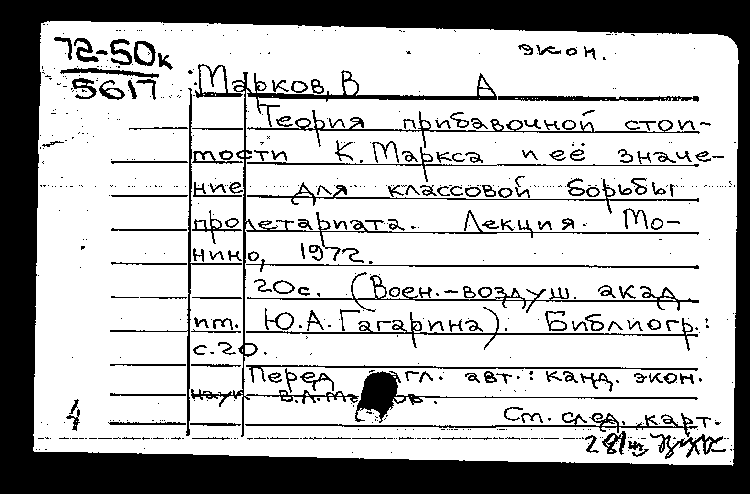 72-50к
экон.
5617
Марков, В А
Теория прибавочной стои-
мости К. Маркса и её значе-
ние для классовой борьбы
пролетариата. Лекция. Мо-
нино, 1972.
20с. (Воен.-воздуш. акад
им. Ю.А. Гагарина). Библиогр.:
с.20.
Перед загл. авт.: канд. экон.
наук В.А. Марков.
4 См. след. карт.